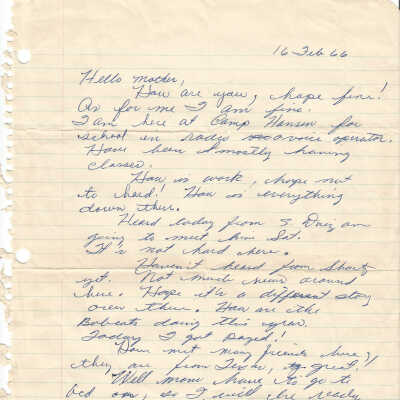 16 Feb 66
Hello Mother,
How are you, hope fine!
As for me I am fine.
I am here at Camp Hansen for
school in radio voice operator.
Have been mostly having
classes.
How is work, hope not
to hard! How is everything
down there.
Heard today from S. Diaz am
going to meet him Sat.
It's not hard here.
Haven't heard from Shorty
yet. Not much new around
here. Hope it's a different story
over there. How are the
Bobcats doing this year.
Today I got payed!
Have met many friends here,
they are from Texas, great!
Well mom have to go to
bed now, so I will be ready